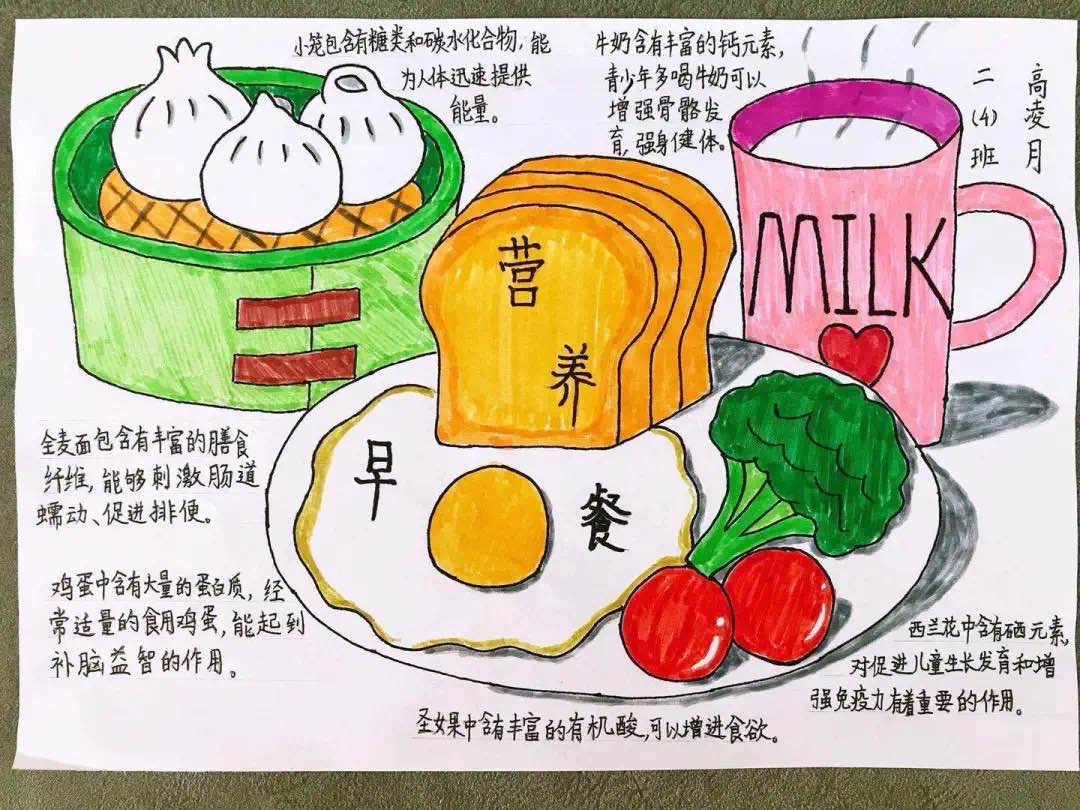 小笼包含有糖类和碳水化合物，能
为人体迅速提供
能量。
牛奶含有丰富的钙元素，
青少年多喝牛奶可以
增强骨骼发
育，强身健体。
高凌月
二(4)班
MILK
营
养
早
餐
全麦面包含有丰富的膳食
纤维，能够刺激肠道
蠕动、促进排便。
鸡蛋中含有大量的蛋白质，经
常适量的食用鸡蛋，能起到
补脑益智的作用。
西兰花中含有硒元素，
对促进儿童生长发育和增
强免疫力有着重要的作用。
圣女果中含有丰富的有机酸，可以增进食欲。